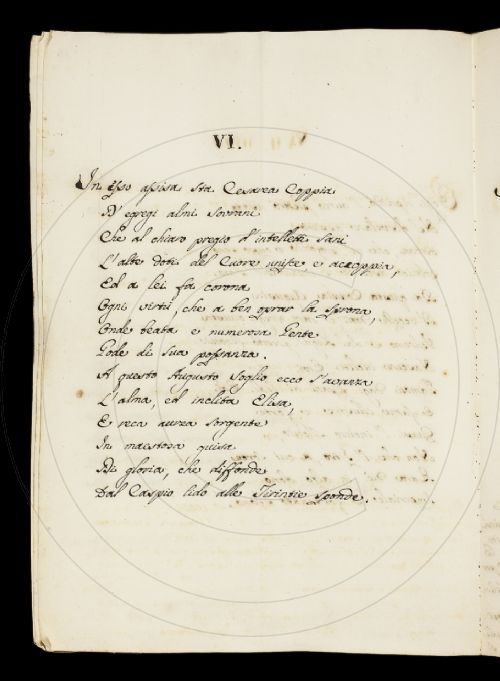 VI.
In esso assisa sta Cesarea Coppia
D'egregi almi Sovrani
Che al chiaro pregio d'intelletti sani
L'alte doti del Cuore unisce, e accoppia,
Ed a lei fa corona
Ogni virtù, che a ben oprar la sprona,
Onde beata e numerosa Gente
Gode di sua possanza.
A questo Augusto Soglio ecco s'avanza
L'alma, ed inclita Elisa,
E reca aurea sorgente
In maestosa guisa
Di gloria, che diffonde
Dal Caspio lido alle Tirintie sponde.